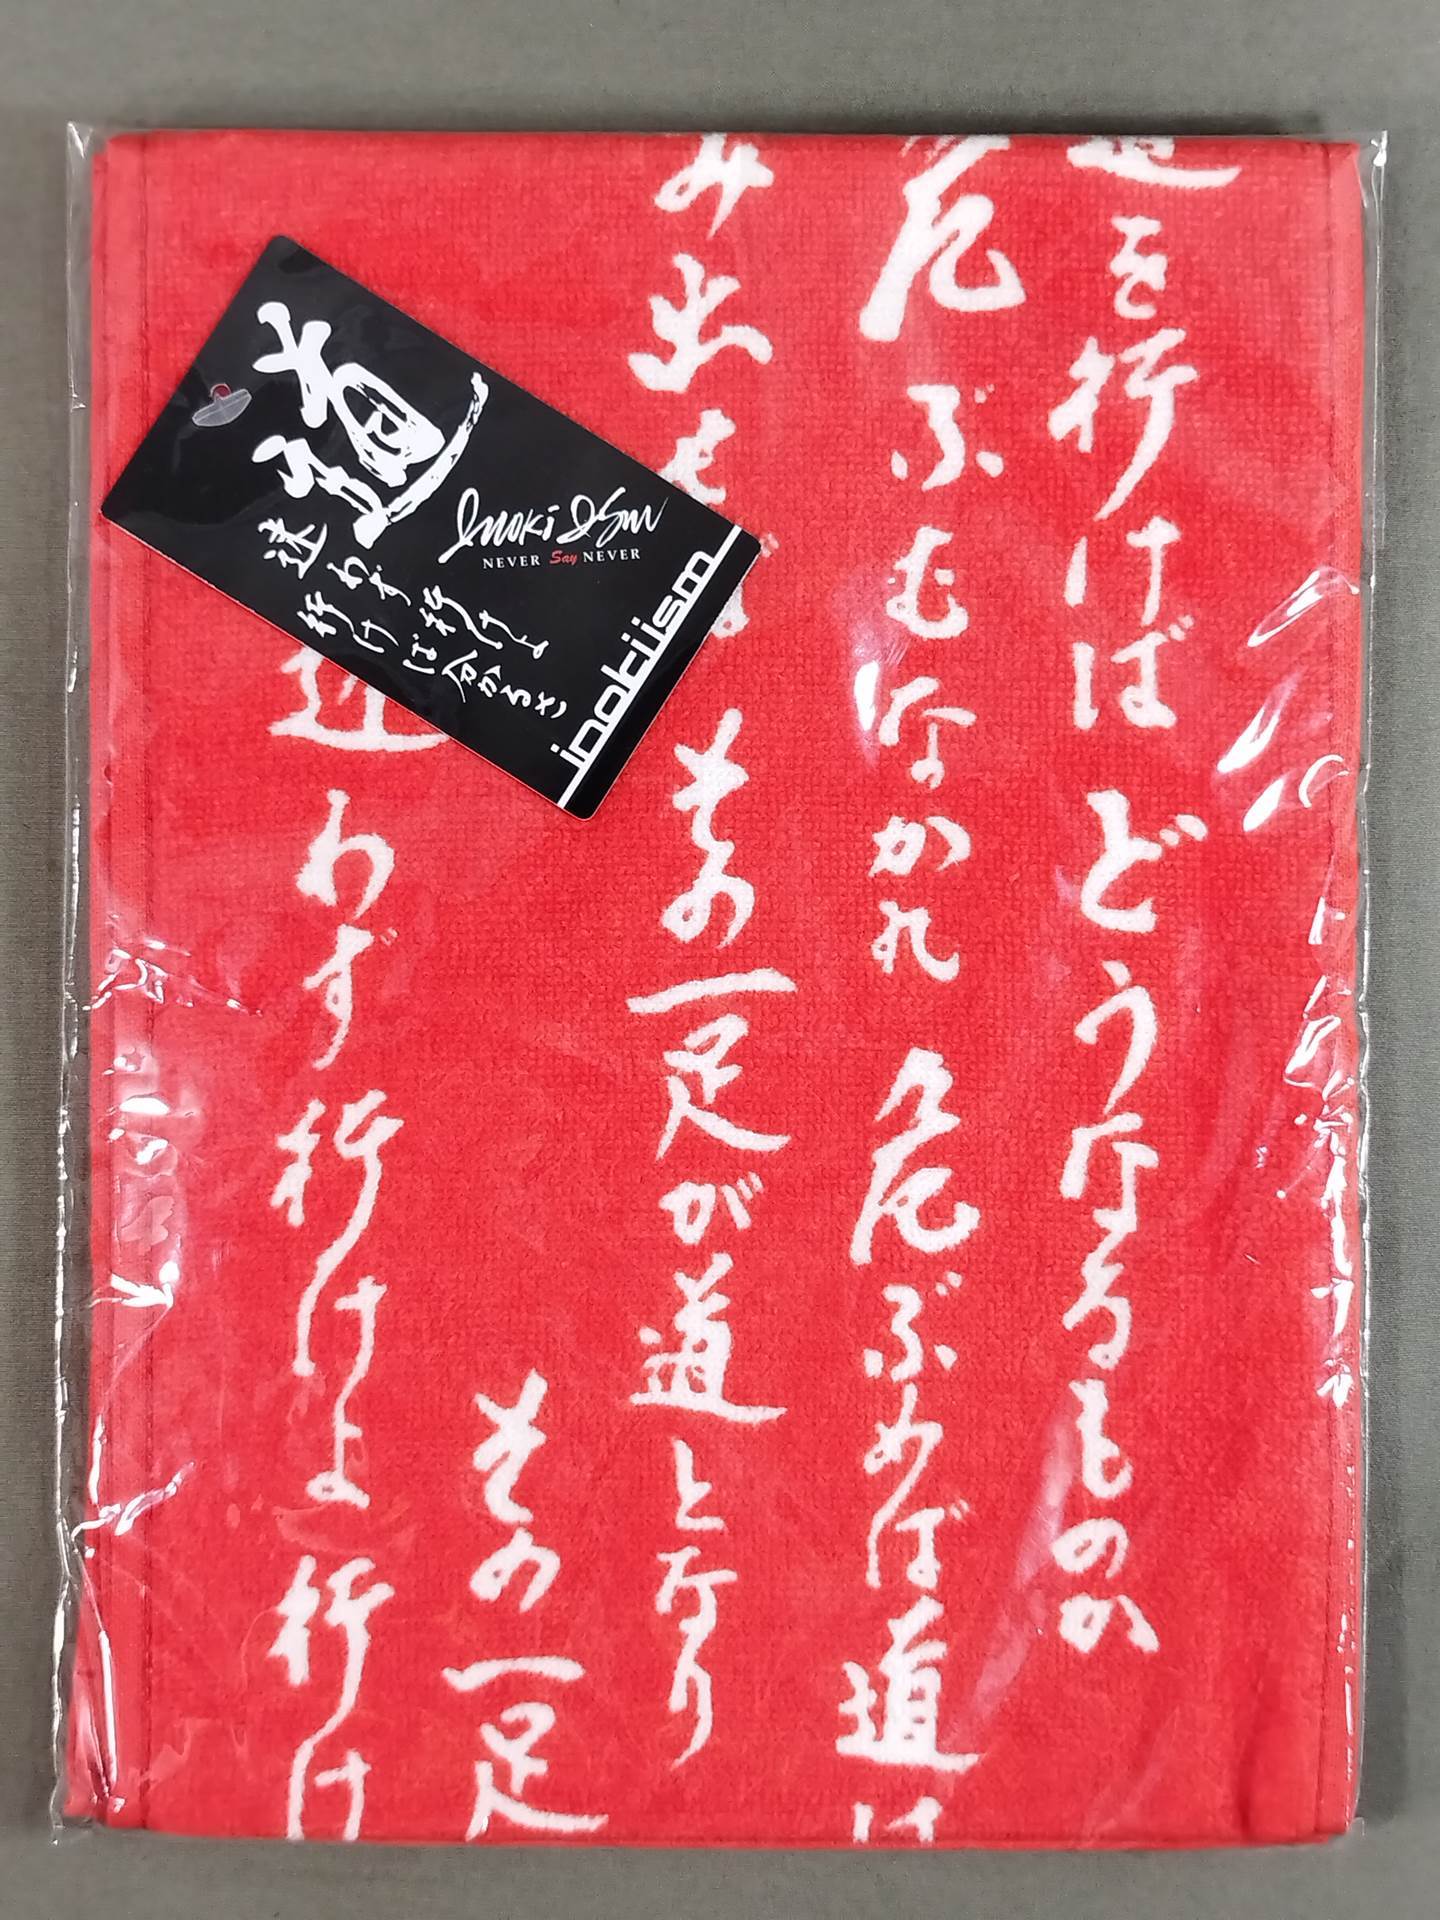 道を行けばどうなるものか
危ぶむなかれ 危ぶめば道は
み出せば その一足が道となり
その一足
迷わず行けよ 行け
道
Inoki Ism
NEVER Say NEVER
迷わず行けよ
行けば分かるさ
inoki ism